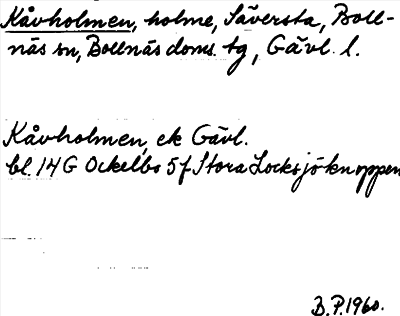 Kåvholmen, holme, Säversta, Boll-
näs sn, Bollnäs doms. tg, Gävl. l.
Kåvholmen, ek Gävl.
bl. 14 G Ockelbo 5 f Stora Locksjöknoppen
B.P. 1960.